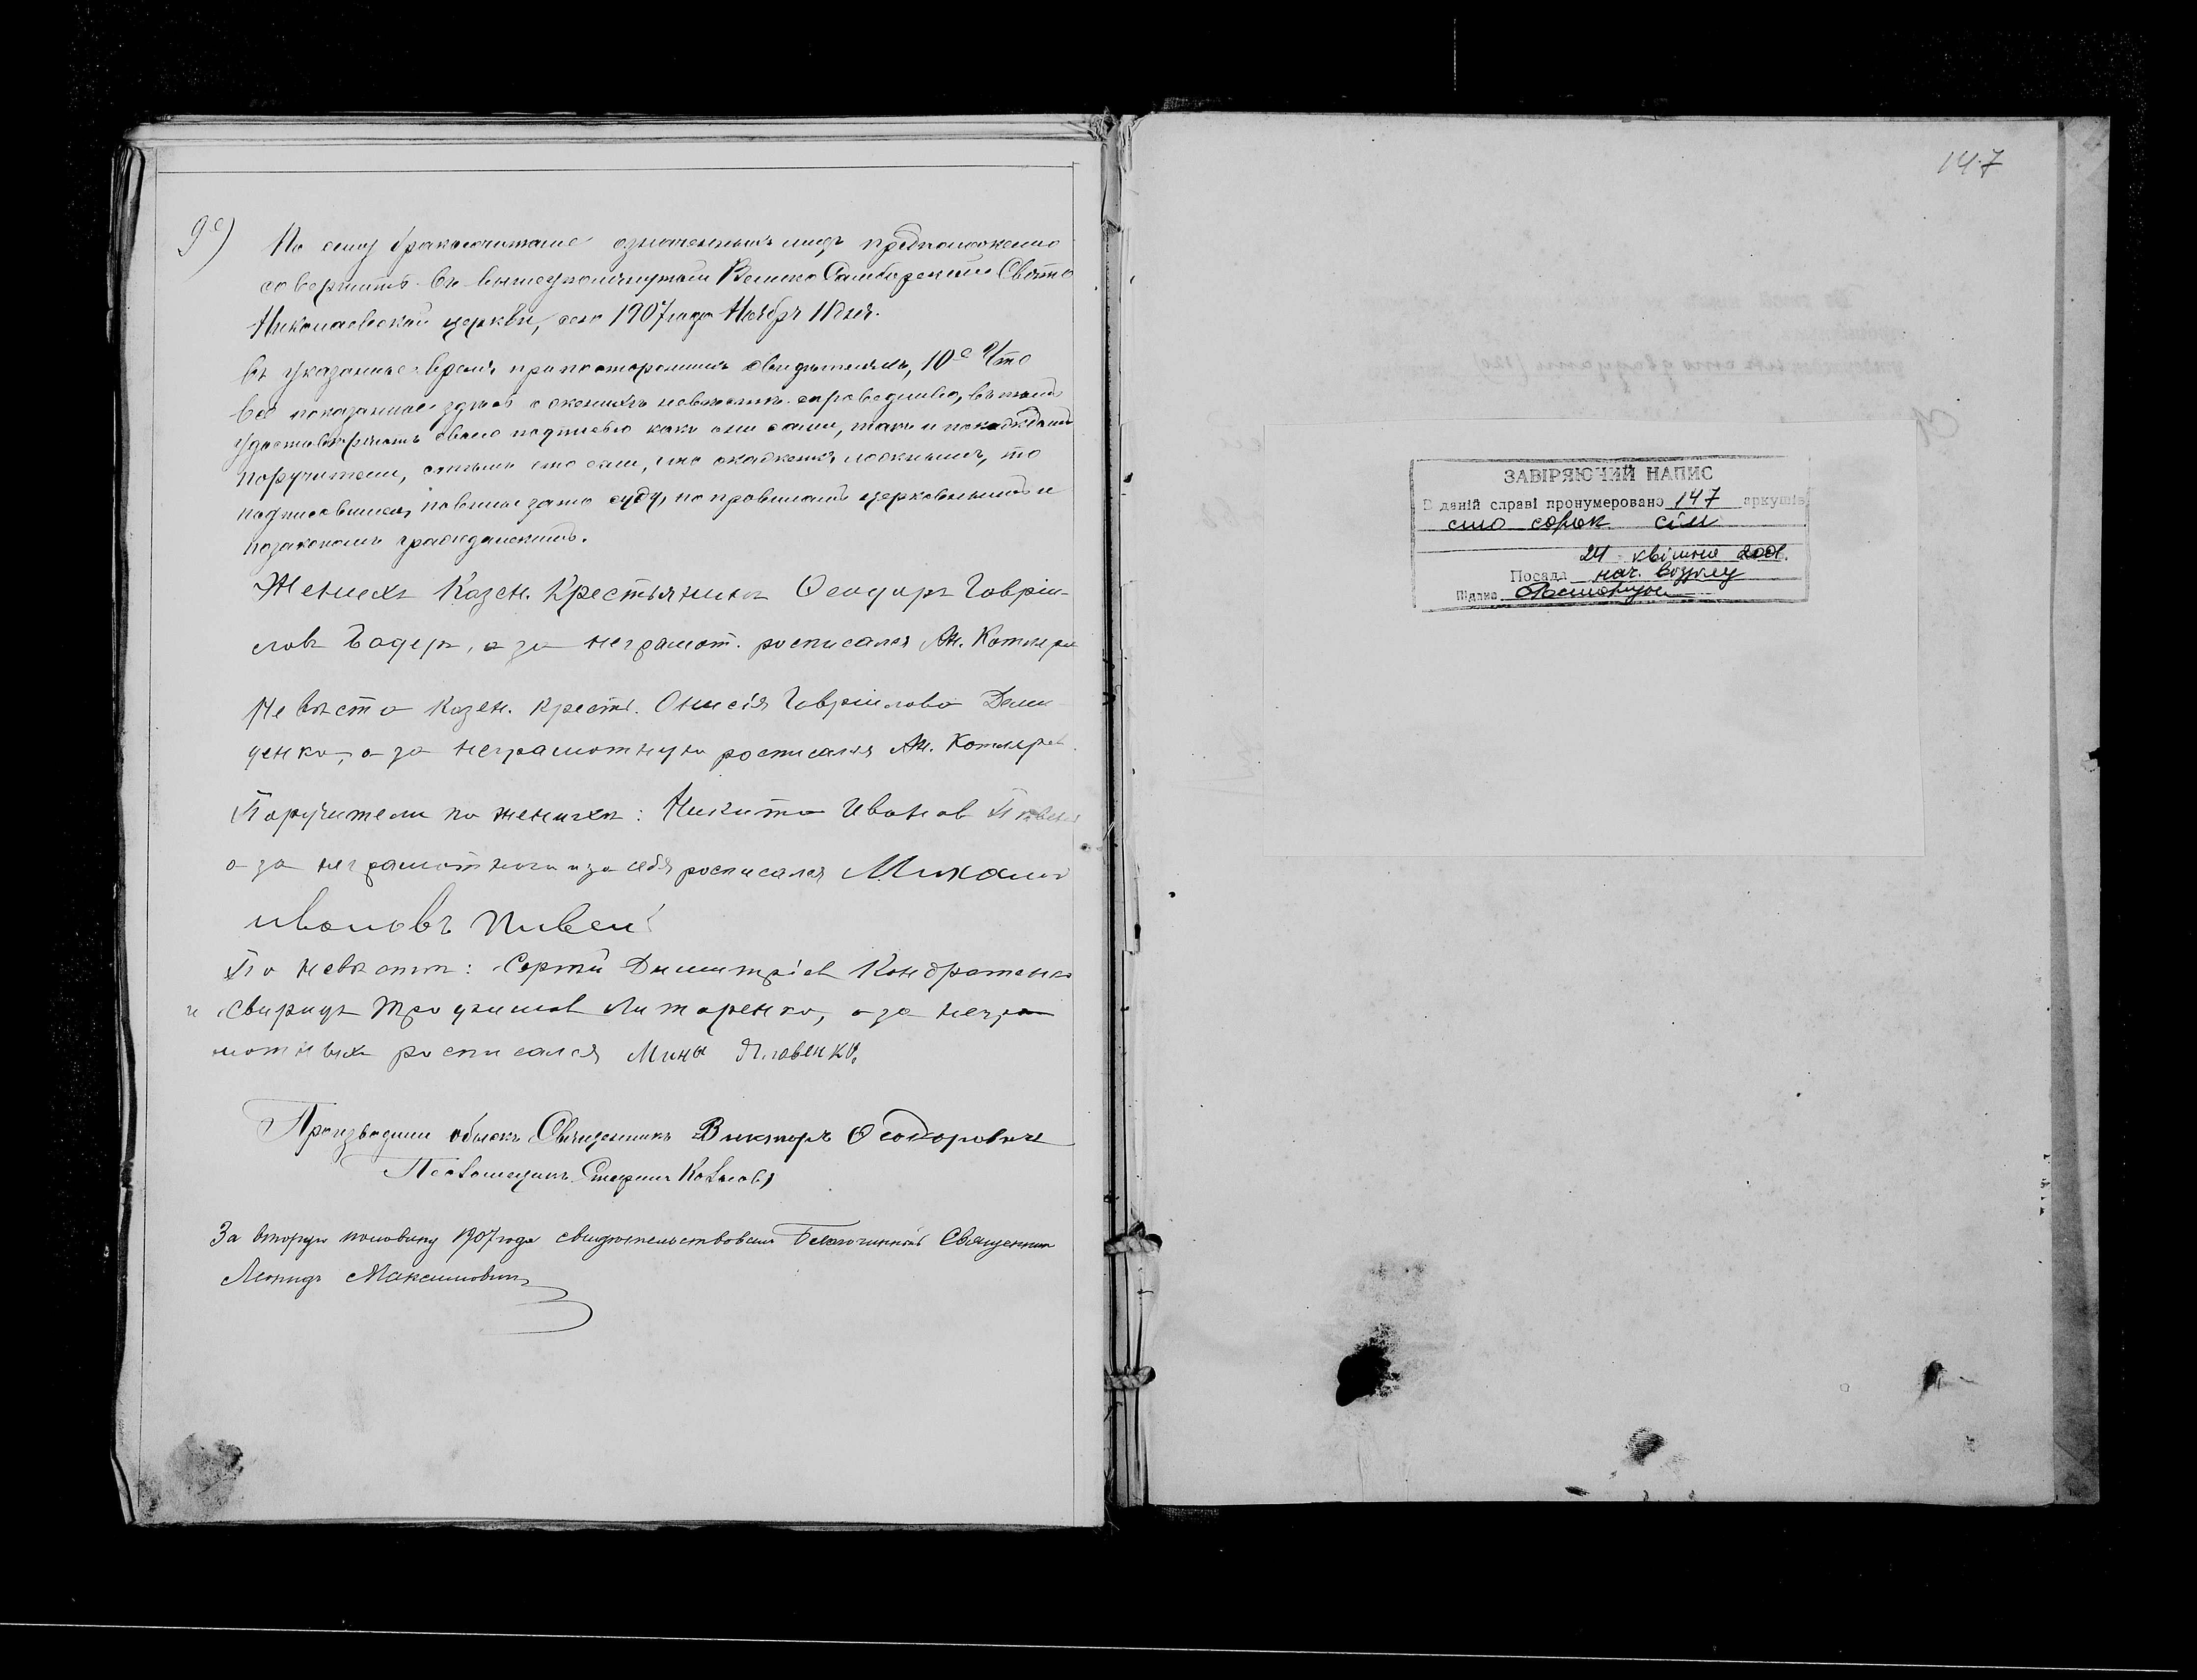 9е) По сему бракосочетание означенныхъ лицъ предположено
совершить въ вышеупомянутой Велико Самборской Свято
Николаевской церкви, сего 1907 года Ноябрь 11 дня.
въ указанное время при постороннихъ свидѣтеляхъ, 10е Что
все показанное здѣсь о женихѣ и невѣстѣ справедливо, въ томъ
удостовѣряютъ своею подписью какъ они сами, такъ и по каждомъ
поручители, съ тѣмъ что если, что окажется ложнымъ, то
подписавшіеся повинны за то суду, по правиламъ церковнымъ и
по законамъ гражданскимъ.
Женихъ Казен. Крестьянинъ Ѳеодоръ Гавріи-
ловъ Бадеръ, а за неграмот. росписался Ан. Котляръ
Невѣста казен. крест. Онисія Гавріилова Деми-
денко, а за неграмотную росписался Ан. Котляръ
Поручители по женихѣ: Никита Иванов Пивень
а за неграмотного и за себя росписался Михаилъ
Ивановъ Пивень
По невѣстѣ: Сергѣй Димитріев Кондратенко
и Свиридъ Трофимов Литаренко, а за негра
мотныхъ росписался Мина Яковенко.
Производили обыскъ Священникъ Викторъ Ѳеодоровичъ
Псаломщикъ Стефанъ
За вторую половину 1907 года свидѣтельствовалъ Благочинный Священник
Леонидъ Максимовичъ
147
ЗАВІРЯЮЧИЙ НАПИС
В даній справі пронумеровано 147 аркушів
сто сорок сім
24 квітня 2001.
Посада нач. відділу
Підпис